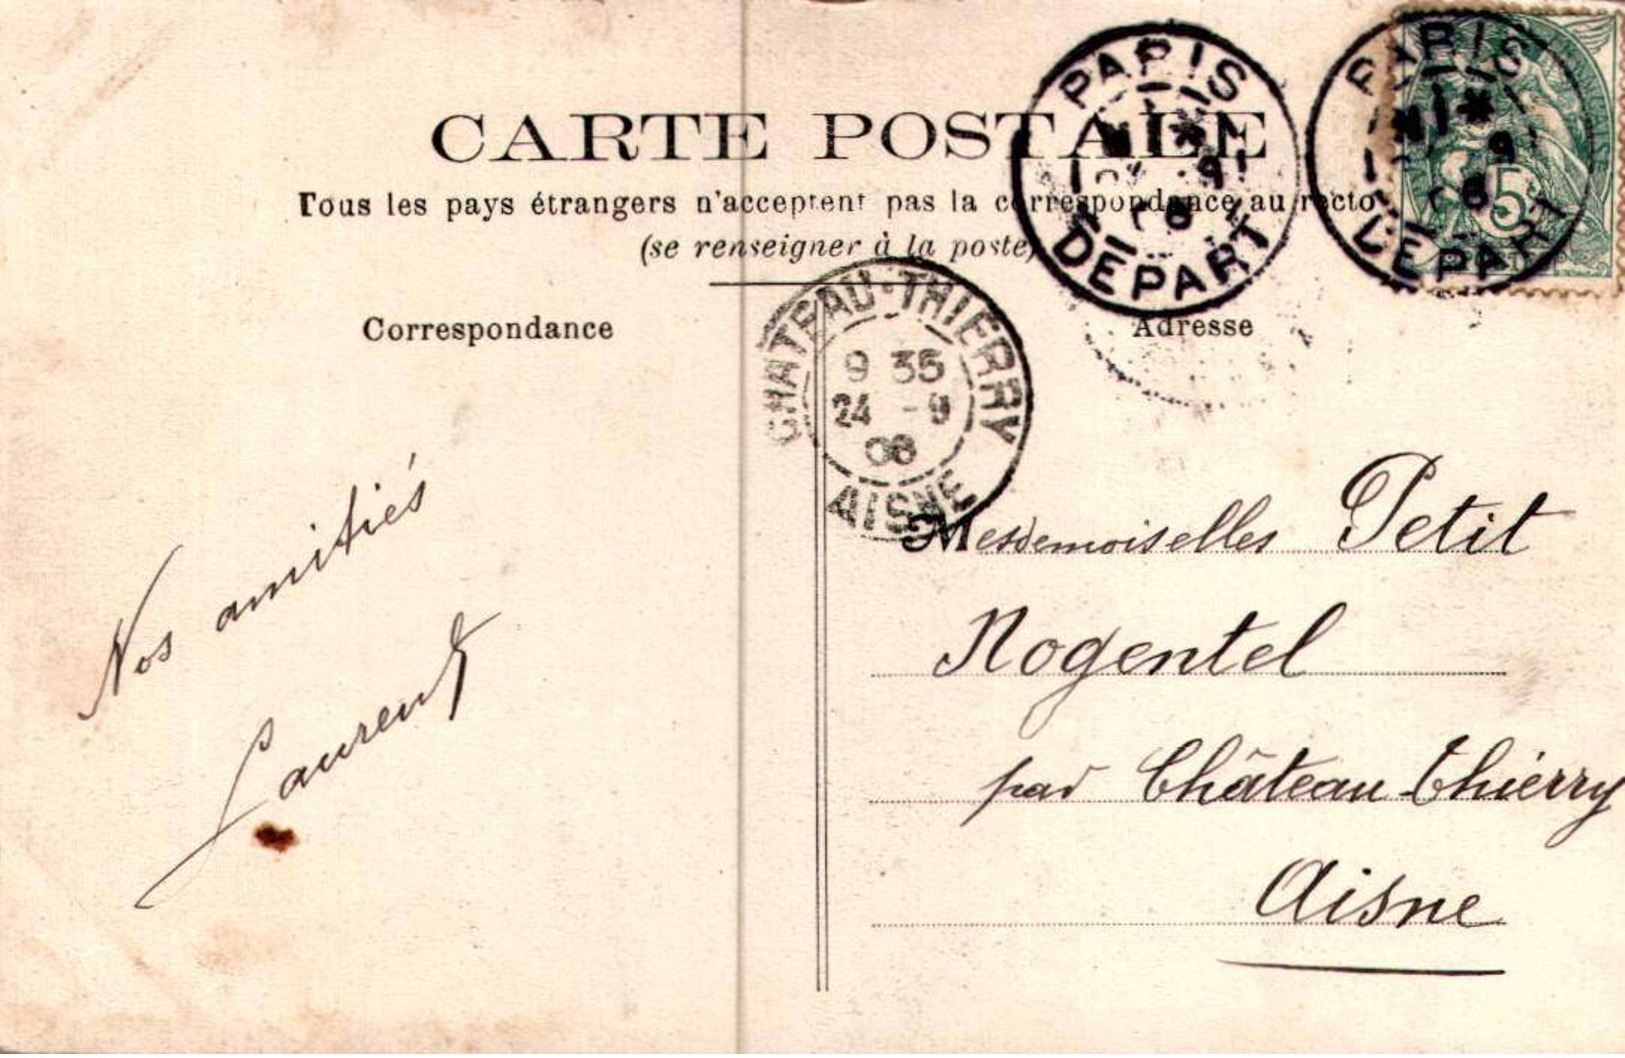 CARTE POSTALE
Tous les pays étrangers n'acceptent pas la correspondance au recto
(se renseigner à la poste)
Correspondance
Adresse
PARIS
DEPART
PARIS
DEPART
5
CHATEAU-THIERRY
9 35
24 -9
08
AISNE
Nos amitiés
Laurent
Mesdemoiselles Petit
Nogentel
par Château-Thierry
Aisne